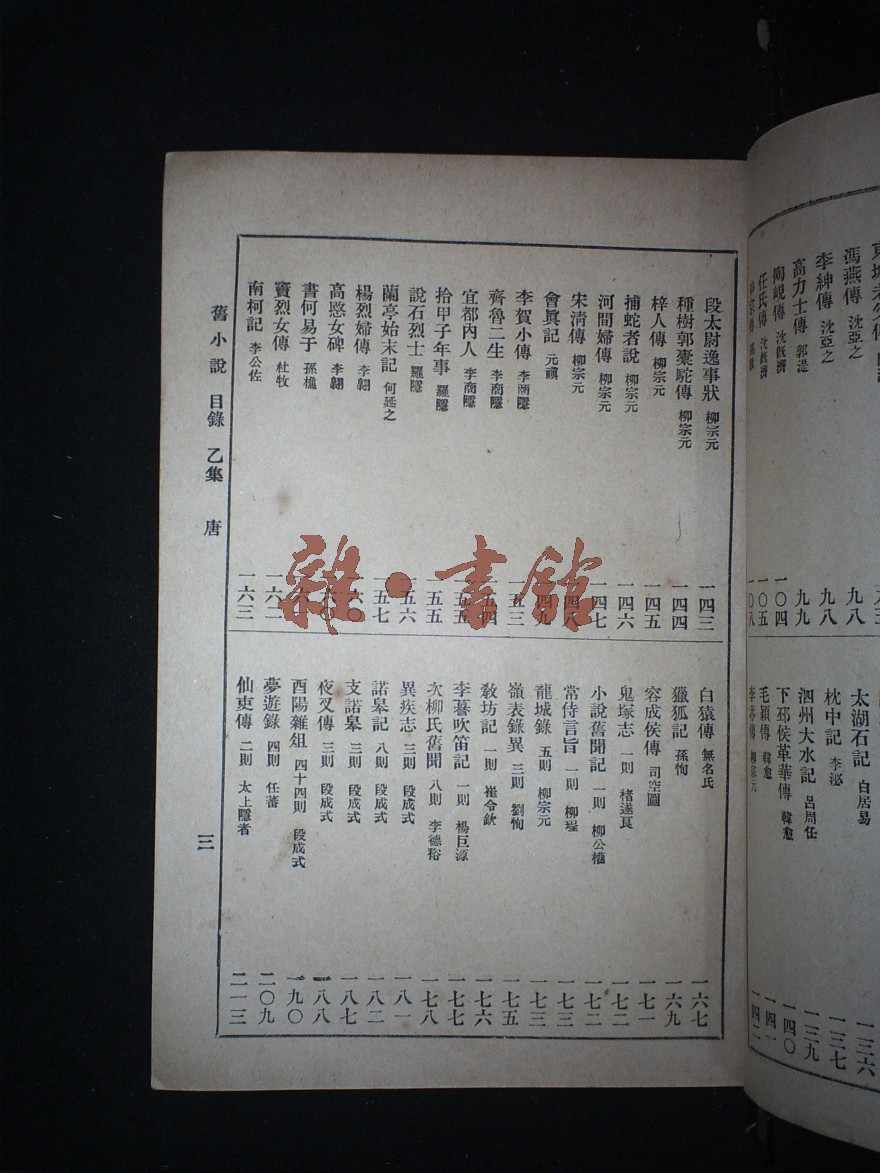 馮燕傳 沈亞之 九八
李紳傳 沈亞之 九八
高力士傳 郭湜 九九
陶峴傳 沈既濟 一〇四
任氏傳 沈既濟 一〇五
一〇八
太湖石記 白居易 一三六
枕中記 李泌 一三七
泗州大水記 呂周任 一三九
下邳侯革華傳 韓愈 一四〇
毛穎傳 韓愈 一四一
李赤傳 柳宗元 一四二
段太尉逸事狀 柳宗元 一四三
種樹郭橐駝傳 柳宗元 一四四
梓人傳 柳宗元 一四五
捕蛇者說 柳宗元 一四六
河間婦傳 柳宗元 一四七
宋清傳 柳宗元 一四八
會眞記 元稹 一四九
李賀小傳 李商隱 一五三
齊魯二生 李商隱 一五四
宜都內人 李商隱 一五五
拾甲子年事 羅隱 一五五
說石烈士 羅隱 一五六
蘭亭始末記 何延之 一五七
楊烈婦傳 李翱 一六〇
高愍女碑 李翱
書何易于 孫樵
竇烈女傳 杜牧 一六二
南柯記 李公佐 一六三
白猿傳 無名氏 一六七
獵狐記 孫恂 一六九
容成侯傳 司空圖 一七一
鬼塚志 一則 褚遂良 一七二
小說舊聞記 一則 柳公權 一七二
常侍言旨 一則 柳珵 一七三
龍城錄 五則 柳宗元 一七三
嶺表錄異 三則 劉恂 一七五
敎坊記 一則 崔令欽 一七六
李謩吹笛記 一則 楊巨源 一七七
次柳氏舊聞 八則 李德裕 一七八
異疾志 三則 段成式 一八一
諾皋記 八則 段成式 一八二
支諾皋 三則 段成式 一八七
夜叉傳 三則 段成式 一八八
酉陽雜俎 四十四則 段成式 一九〇
夢遊錄 四則 任蕃 二〇九
仙吏傳 二則 太上隱者 二一三
舊小說 目錄 乙集 唐 三
雜·書館